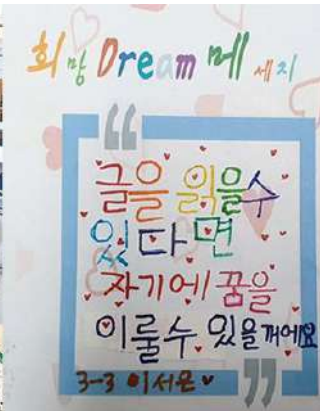 희망 Dream 메세지
글을 읽을수
있다면
자기에 꿈을
이룰수 있을꺼에요
3-3 이서은